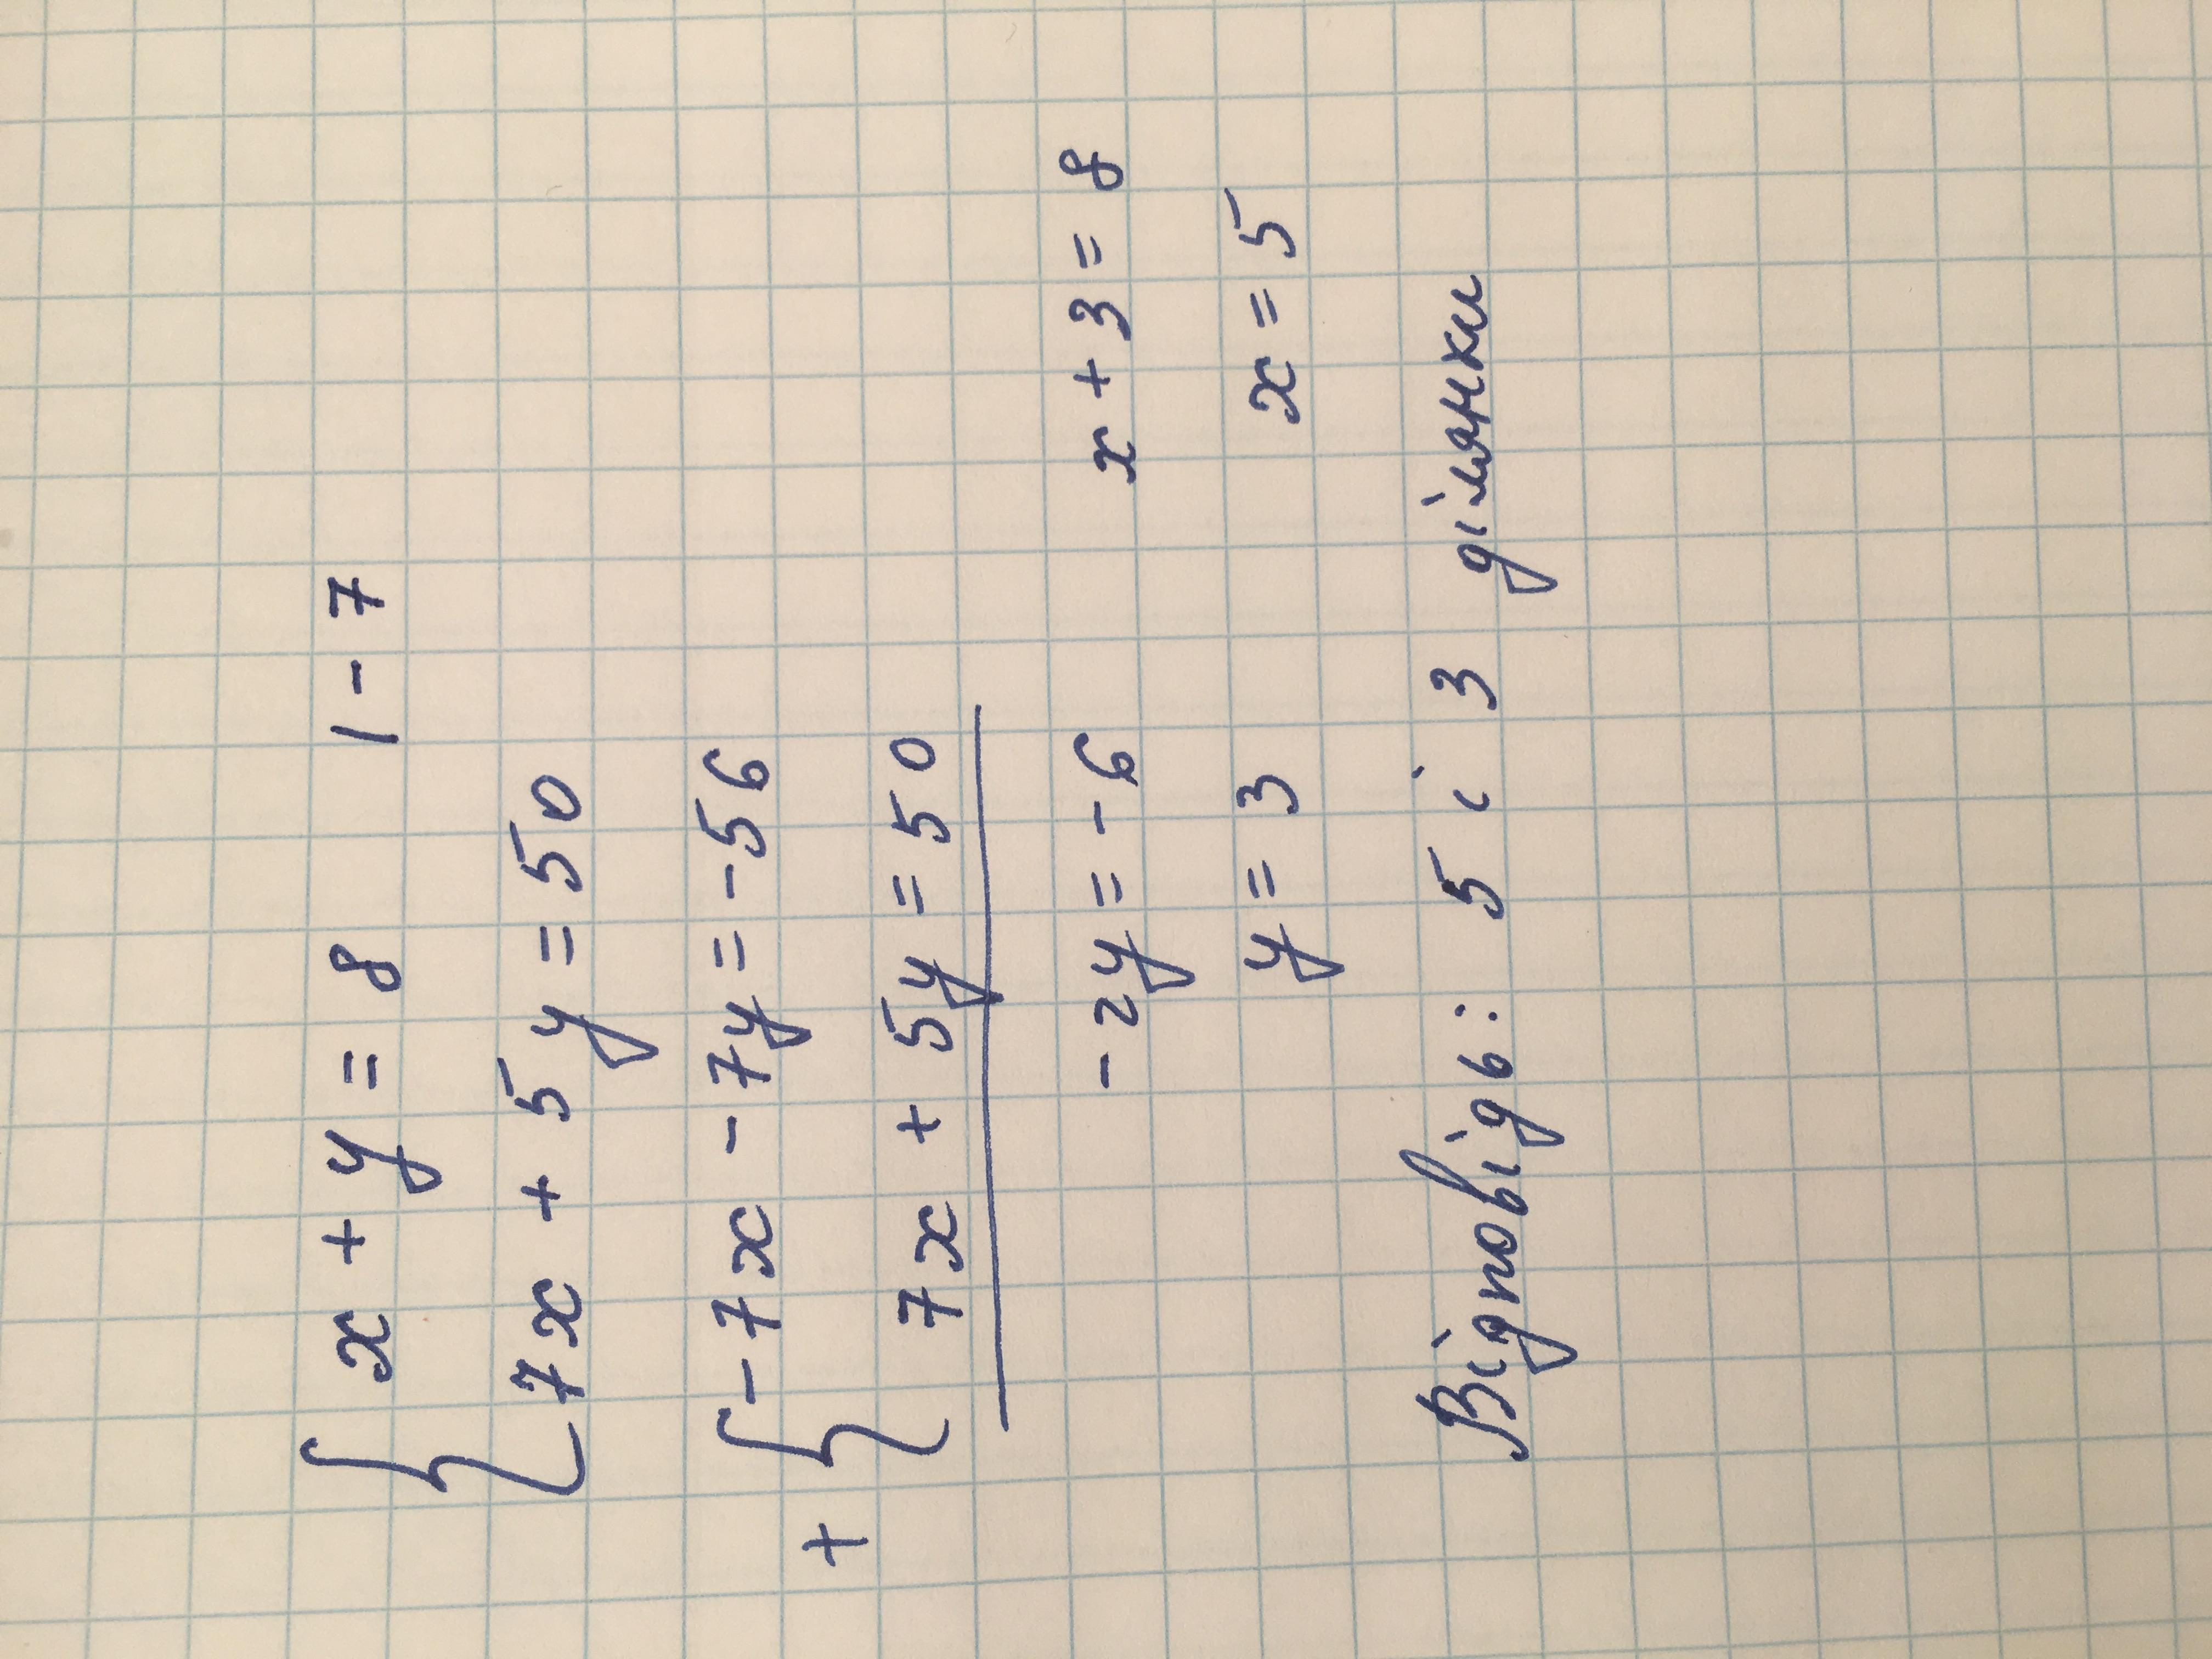 { x + y = 8 | - 7
7x + 5y = 50
+ { -7x - 7y = -56
7x + 5y = 50
-2y = -6 x + 3 = 8
y = 3 x = 5
Відповідь: 5 і 3 ділянки